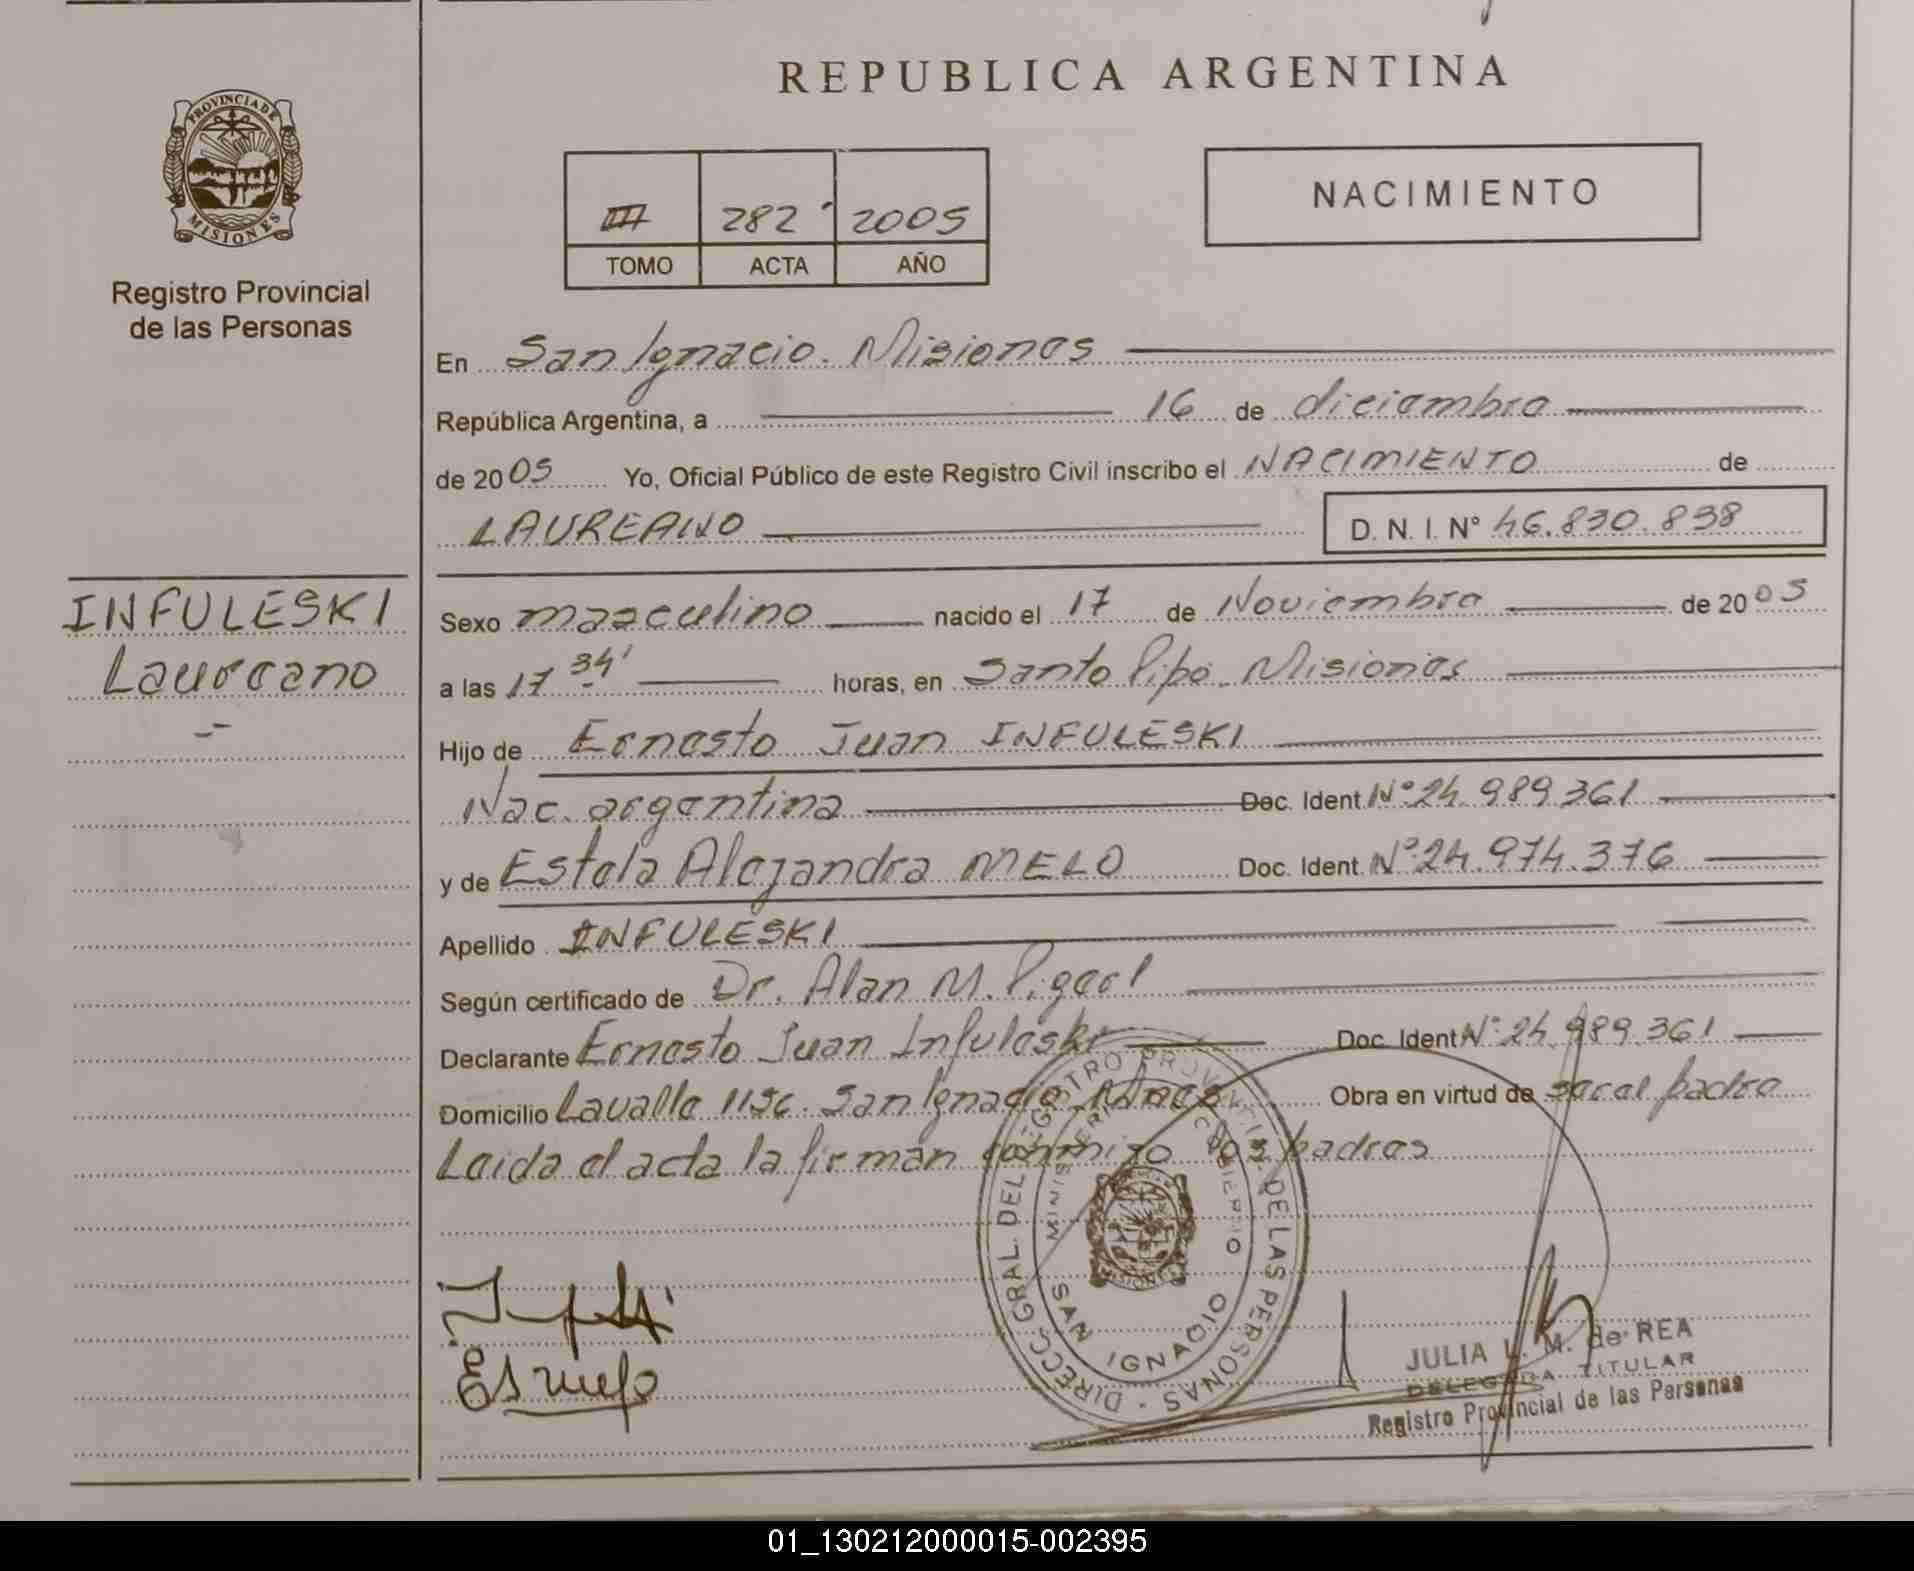 REPUBLICA ARGENTINA
PROVINCIA DE
MISIONES
Registro Provincial
de las Personas
NACIMIENTO
III 282 2005
TOMO ACTA AÑO
En San Ignacio. Misiones
República Argentina, a 16 de diciembre
de 2005 Yo, Oficial Público de este Registro Civil inscribo el NACIMIENTO de
LAUREANO D. N. I. Nº 46.830.838
INFULESKI
Laureano
Sexo masculino nacido el 17 de Noviembre de 2005
a las 17 34' horas, en Santo Pipó. Misiones
Hijo de Ernesto Juan INFULESKI
Nac. argentina Doc. Ident. Nº 24.989.361
y de Estela Alejandra MELO Doc. Ident. Nº 24.974.376
Apellido INFULESKI
Según certificado de Dr. Alan M.
Declarante Ernesto Juan Infuleski Doc. Ident Nº 24.989.361
Domicilio Lavalle San Ignacio Mnes Obra en virtud de ser el padre
Leida el acta la firman conmigo los padres
DIRECC. GRAL. DEL REGISTRO PROVINCIAL DE LAS PERSONAS
SAN IGNACIO
JULIA L. M. de REA
DELEGADA TITULAR
Registro Provincial de las Personas
01_130212000015-002395